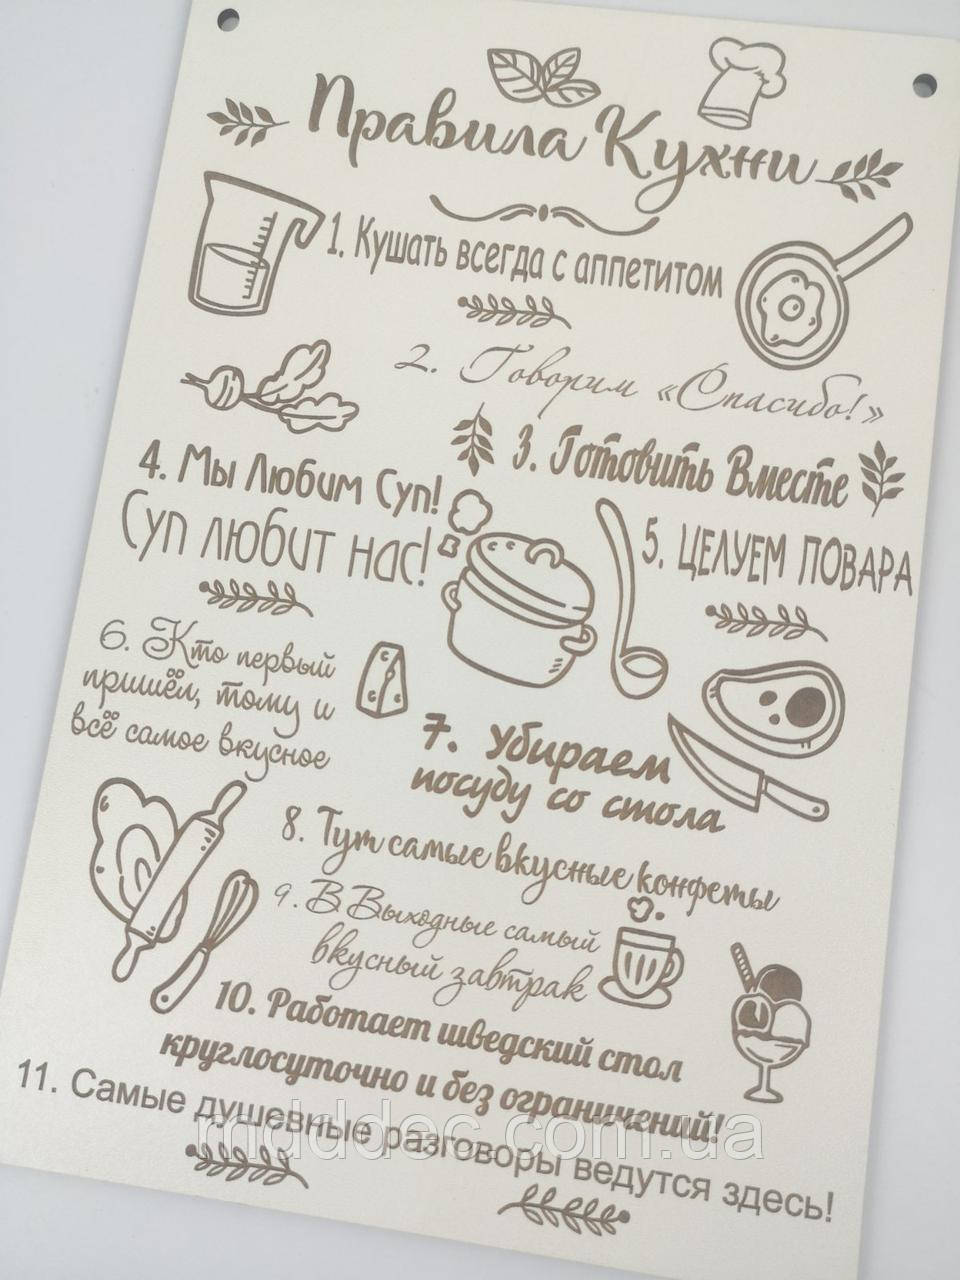 Правила Кухни
1. Кушать всегда с аппетитом
2. Говорим «Спасибо!»
3. Готовить Вместе
4. Мы Любим Суп!
Суп любит нас!
5. ЦЕЛУЕМ ПОВАРА
6. Кто первый
пришёл, тому и
всё самое вкусное
7. Убираем
посуду со стола
8. Тут самые вкусные конфеты
9. В Выходные самый
вкусный завтрак
10. Работает шведский стол
круглосуточно и без ограничений!
11. Самые душевные разговоры ведутся здесь!
mdddec.com.ua